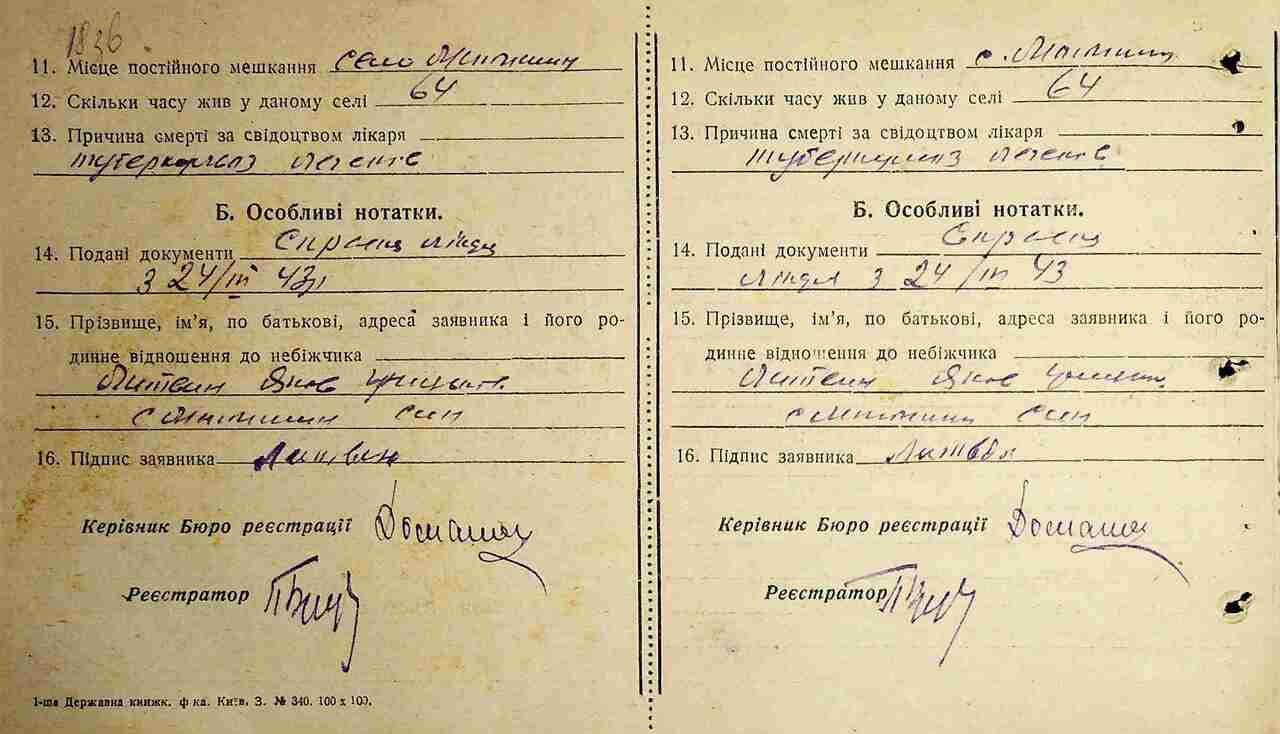 1836
11. Місце постійного мешкання село
12. Скільки часу жив у даному селі 64
13. Причина смерті за свідоцтвом лікаря
туберкульоз легенів
Б. Особливі нотатки.
14. Подані документи
з 24/III 43р
15. Прізвище, ім'я, по батькові, адреса заявника і його ро-
динне відношення до небіжчика
Литвин Яков
син
16. Підпис заявника Литвин
Керівник Бюро реєстрації
Реєстратор
1-ша Державна книжк. ф-ка. Київ, З. № 340. 100 x 100.
11. Місце постійного мешкання с.
12. Скільки часу жив у даному селі 64
13. Причина смерті за свідоцтвом лікаря
туберкульоз легенів
Б. Особливі нотатки.
14. Подані документи
з 24/III 43
15. Прізвище, ім'я, по батькові, адреса заявника і його ро-
динне відношення до небіжчика
Литвин Яков
син
16. Підпис заявника Литвин
Керівник Бюро реєстрації
Реєстратор